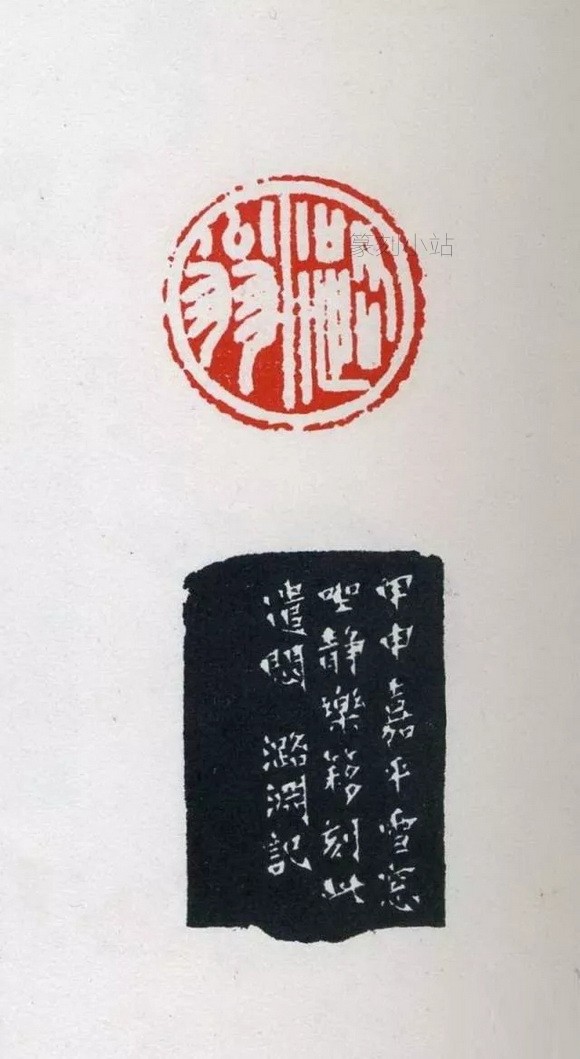 篆刻小站
甲申嘉平雪窓
坐静樂簃刻此
遣悶 潞淵記